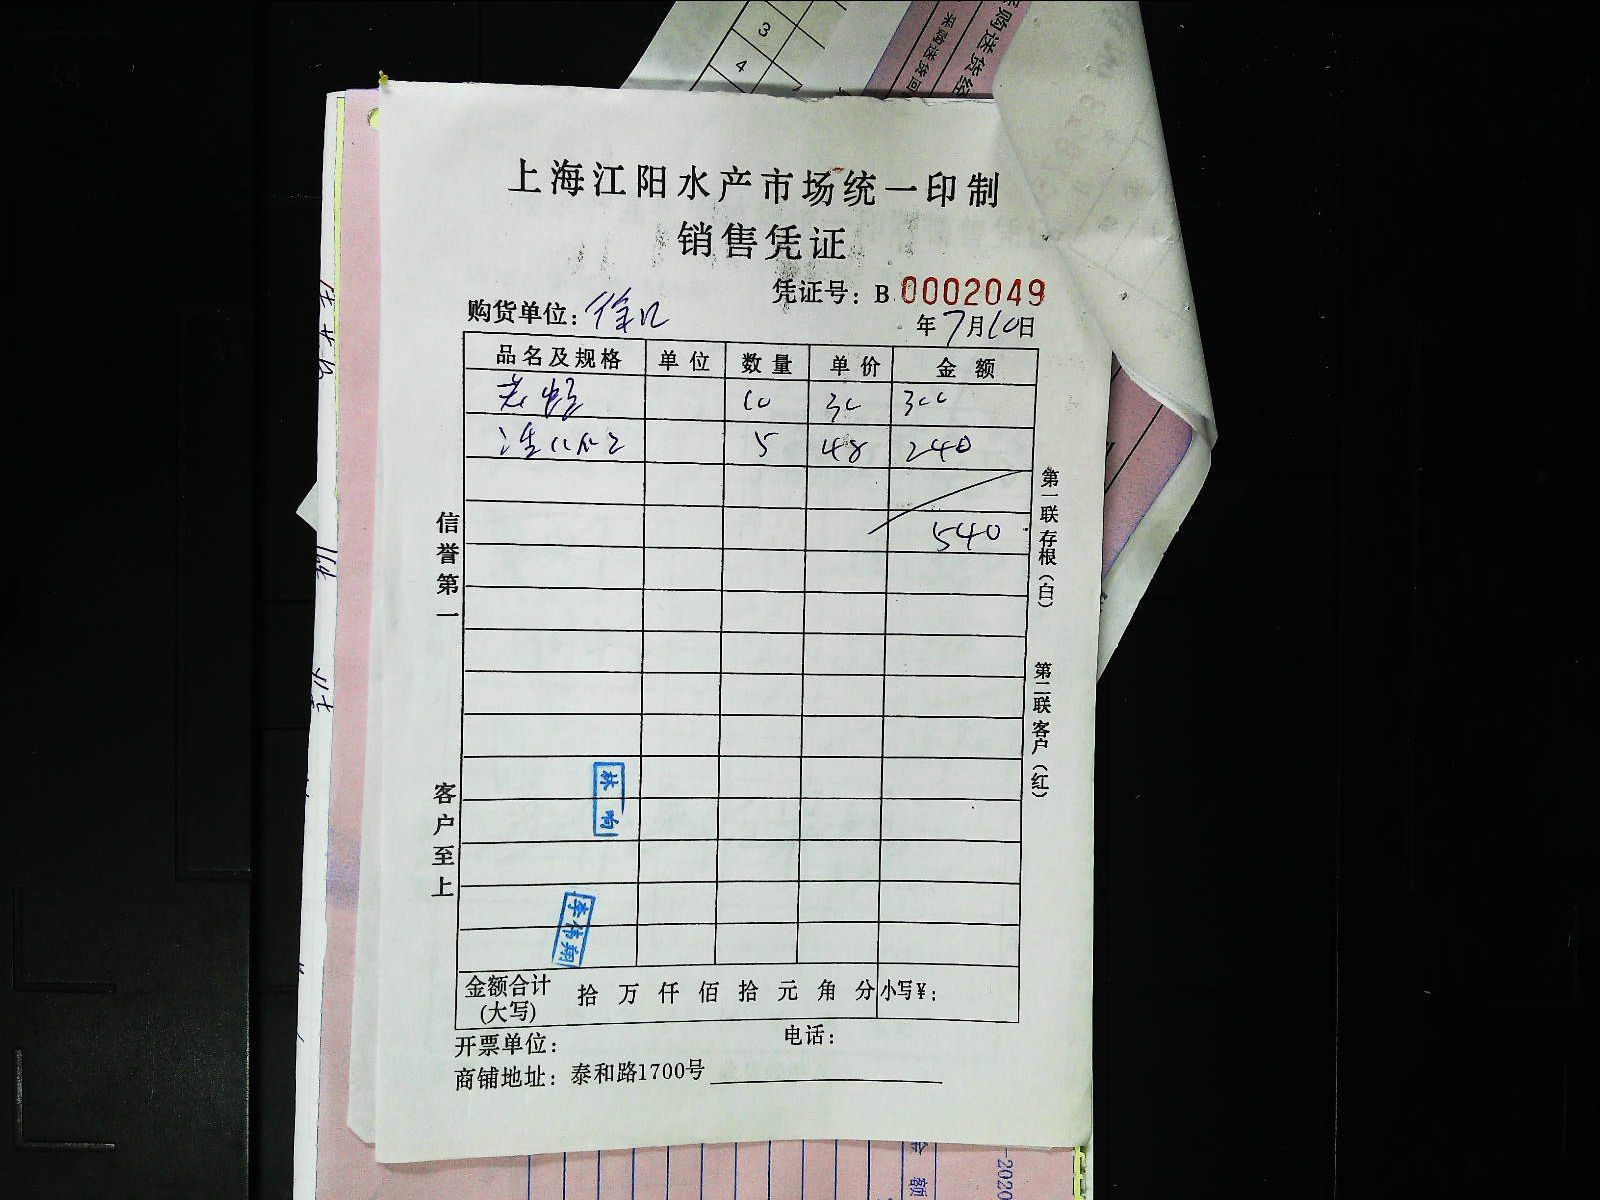 3
4
采购送货回
采购送货经
上海江阳水产市场统一印制
销售凭证
凭证号：B 0002049
购货单位：徐汇
年7月10日
品名及规格 单位 数量 单价 金额
10 30 300
5 48 240
540
信誉第一
客户至上
第一联存根（白）
第二联客户（红）
林响
李伟翔
金额合计(大写) 拾 万 仟 佰 拾 元 角 分 小写¥：
开票单位： 电话：
商铺地址：泰和路1700号
金额
-2020